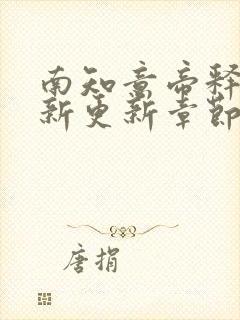 南知意帝释
新更新章节
唐捐